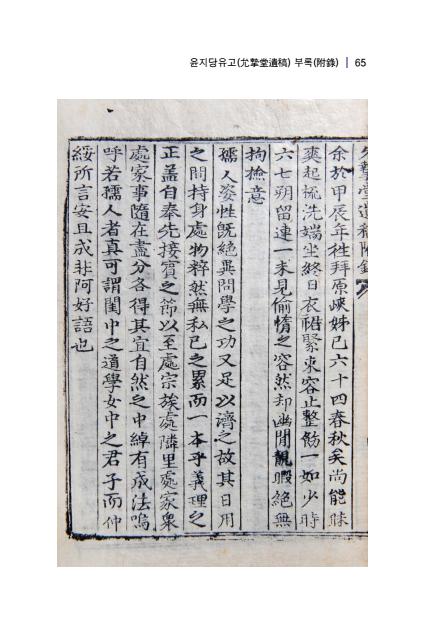 윤지당유고(允摯堂遺稿) 부록(附錄) | 65
允摯堂遺稿附錄
余於甲辰年徃拜原峽姊已六十四春秋矣尚能昧
爽起梳洗端坐終日衣襨緊束容止整飭一如少時
六七朔留連一未見偷惰之容然却幽閒靚暇絕無
拘撿意
孺人姿性旣絕異問學之功又足以濟之故其日用
之間持身處物粹然無私己之累而一本乎義理之
正盖自奉先接賓之節以至處宗族處隣里處家衆
處家事隨在盡分各得其宜自然之中綽有成法嗚
呼若孺人者真可謂閨中之道學女中之君子而仲
綏所言安且成非阿好語也